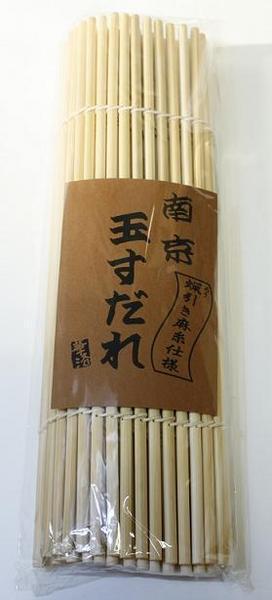 南京
玉すだれ
蝋引き麻糸仕様